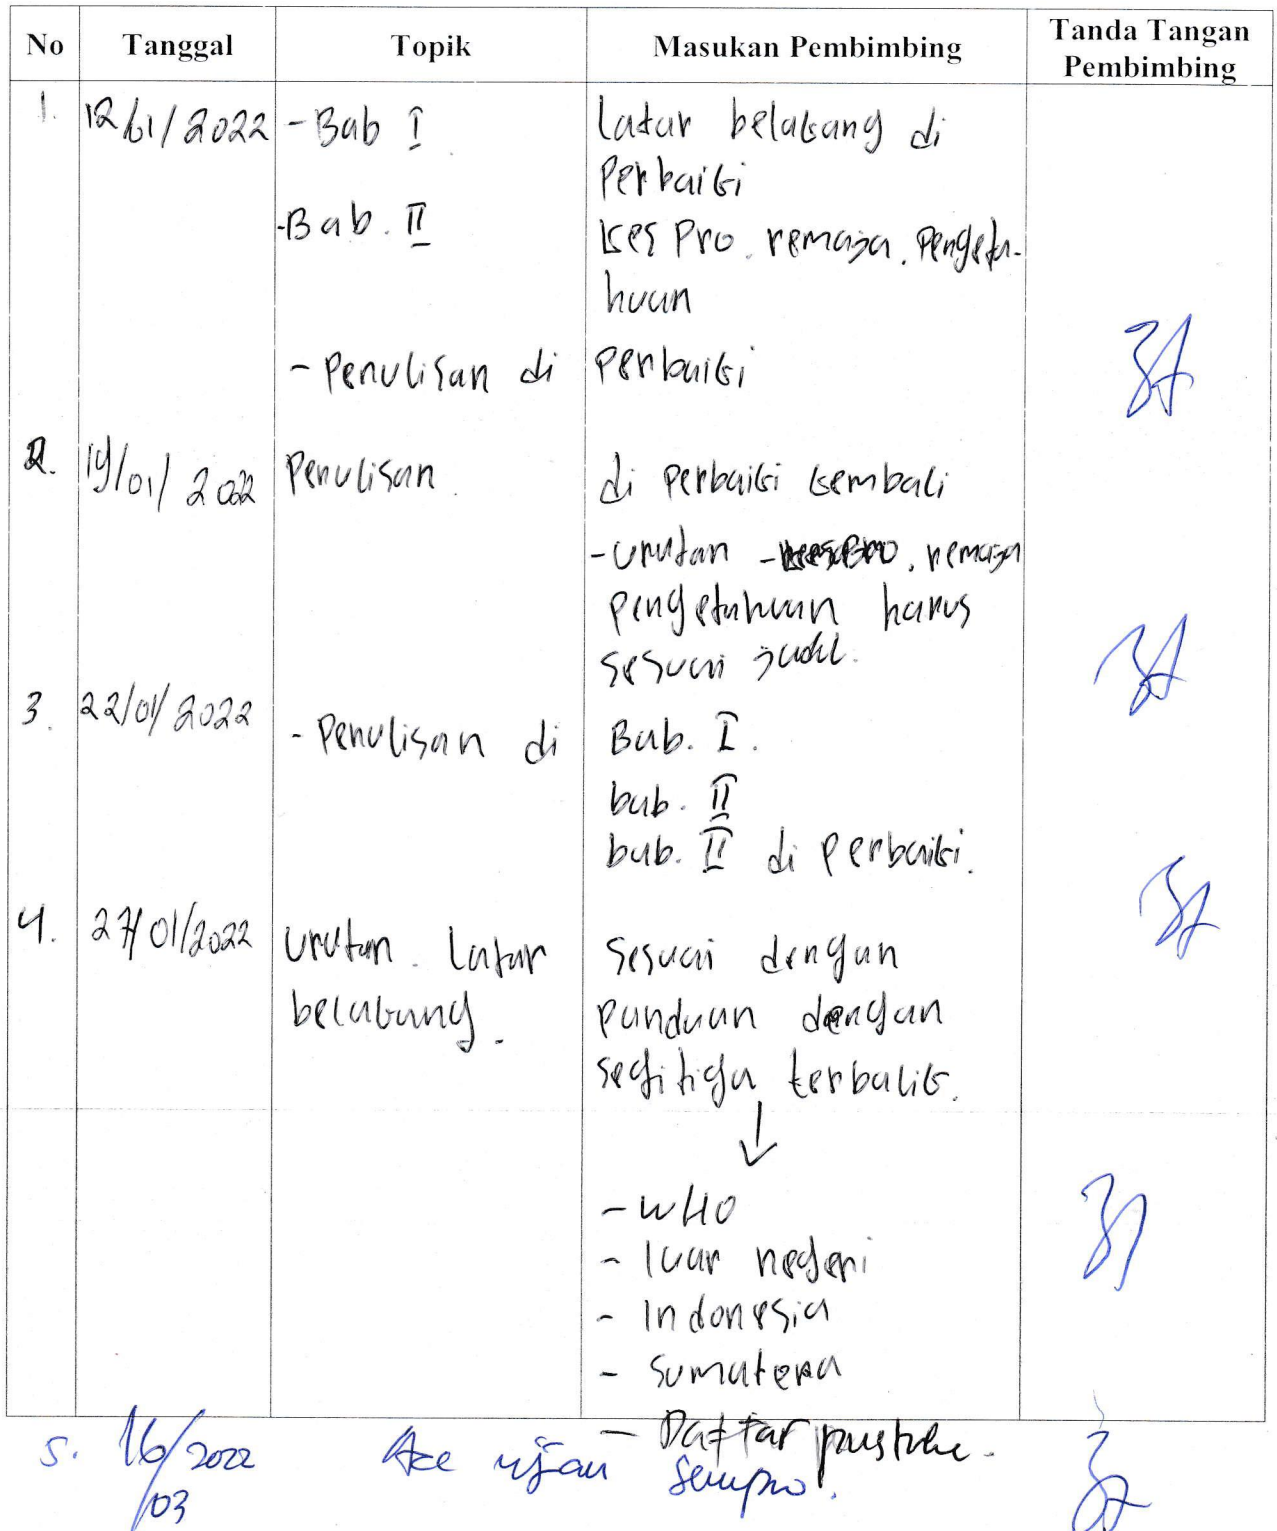 No Tanggal Topik Masukan Pembimbing Tanda Tangan Pembimbing
1. 12/01/2022 - Bab I Latar belakang di
Perbaiki
- Bab. II Kes Pro. remaja. Penge ta-
huan
- Penulisan di perbaiki
2. 19/01/2022 Penulisan. di perbaiki kembali
- urutan - kesPro. remaja
pengetahuan harus
sesuai judul.
3. 22/01/2022 - Penulisan di Bab. I.
bab. II
bab. II di perbaiki.
4. 27/01/2022 urutan. Latar sesuai dengan
belakang. panduan dengan
segitiga terbalik.
↓
- WHO
- luar negeri
- Indonesia
- Sumatera
- Daftar pustaka.
5. 16/03/2022 Acc ujian Sempro.